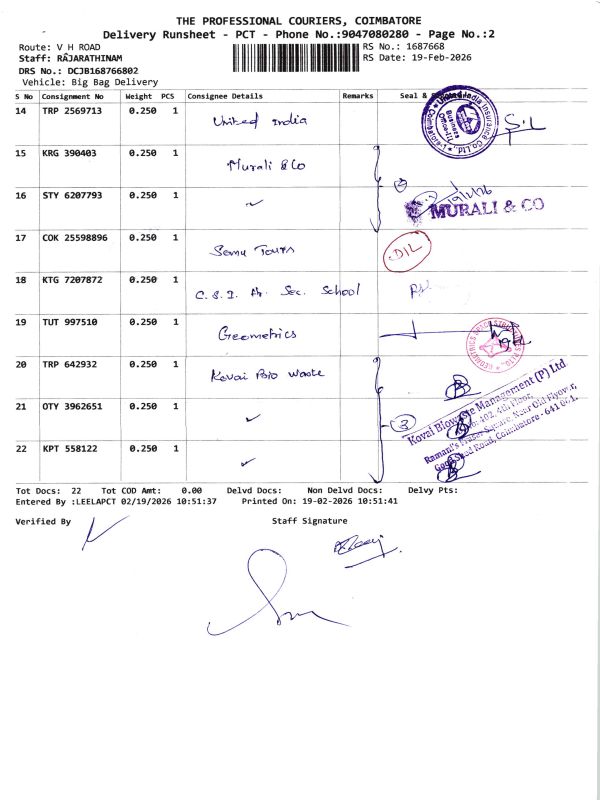 THE PROFESSIONAL COURIERS, COIMBATORE
Delivery Runsheet - PCT - Phone No.:9047080280 - Page No.:2
Route: V H ROAD
RS No.: 1687668
Staff: RÂJARATHINAM
RS Date: 19-Feb-2026
DRS No.: DCJB168766802
Vehicle: Big Bag Delivery
S No Consignment No Weight PCS Consignee Details Remarks Seal &
14 TRP 2569713 0.250 1 United India
United India Insurance Co Ltd.
Business Office-III
Coimbatore-1
S.L
15 KRG 390403 0.250 1 Murali & Co
16 STY 6207793 0.250 1 〃
2
MURALI & CO
17 COK 25598896 0.250 1 Tours
DIL
18 KTG 7207872 0.250 1 C.S.I Hr. Sec. School
19 TUT 997510 0.250 1 Geometrics
20 TRP 642932 0.250 1 Kovai Bio Waste
21 OTY 3962651 0.250 1 〃
3
22 KPT 558122 0.250 1 〃
Kovai Biowaste Management (P) Ltd
No. 402, 4th Floor,
Ramani's Fraser Square, Near Old Flyover,
Goods Shed Road, Coimbatore - 641 001.
Tot Docs: 22 Tot COD Amt: 0.00 Delvd Docs: Non Delvd Docs: Delvy Pts:
Entered By :LEELAPCT 02/19/2026 10:51:37 Printed On: 19-02-2026 10:51:41
Verified By
Staff Signature